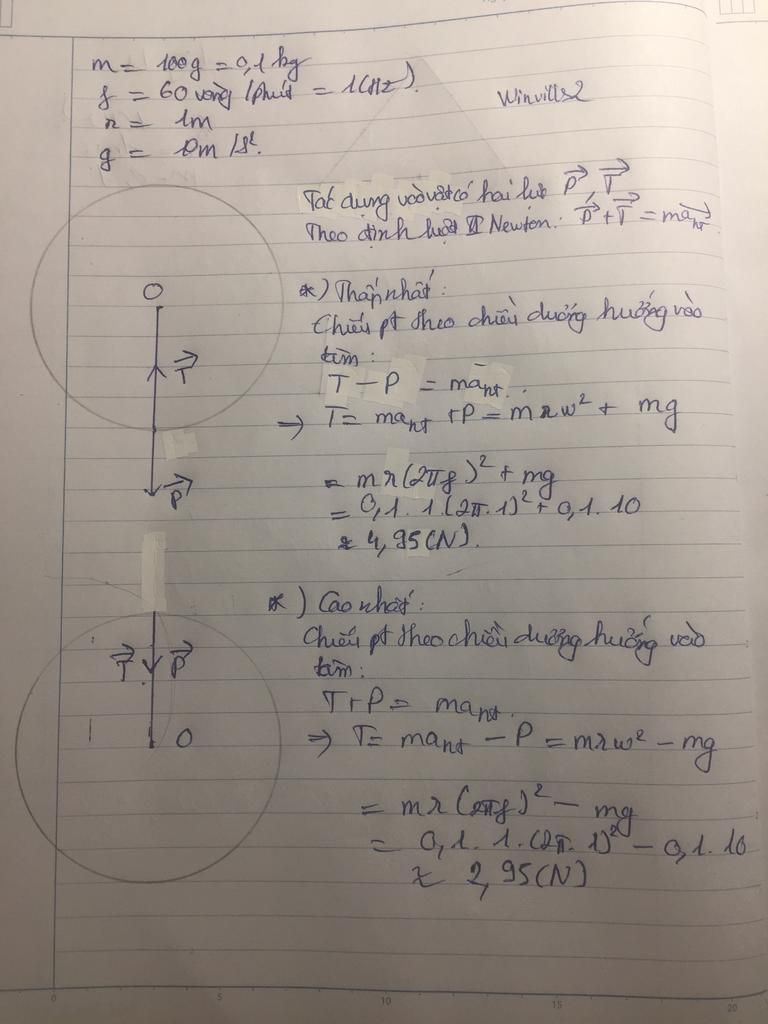 m = 100g = 0,1 kg
f = 60 vòng/phút = 1(Hz).
Winvills2
r = 1m
g = 10m/s².
Tác dụng vào vật có hai lực P⃗, T⃗
Theo định luật II Newton: P⃗ + T⃗ = ma⃗ht
*) Thấp nhất:
Chiếu pt theo chiều dương hướng vào
tâm:
T - P = maht.
→ T = maht + P = mrω² + mg
= mr(2πf)² + mg
= 0,1.1(2π.1)² + 0,1.10
≈ 4,95(N).
O
T⃗
P⃗
*) Cao nhất:
Chiếu pt theo chiều dương hướng vào
tâm:
T + P = maht.
⇒ T = maht - P = mrω² - mg
= mr(2πf)² - mg
= 0,1.1.(2π.1)² - 0,1.10
≈ 2,95(N)
T⃗ P⃗
O
0 5 10 15 20